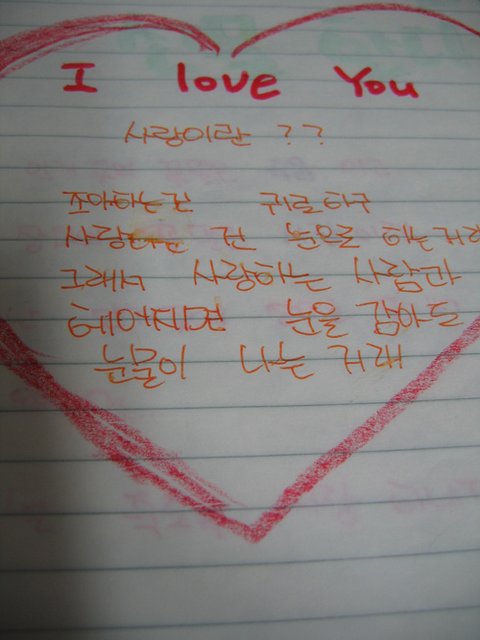 I love You
사랑이란 ??
조아하는건 귀로하구
사랑하는 건 눈으로 하는거래
그래서 사랑하는 사람과
헤어지면 눈을 감아도
눈물이 나는 거래